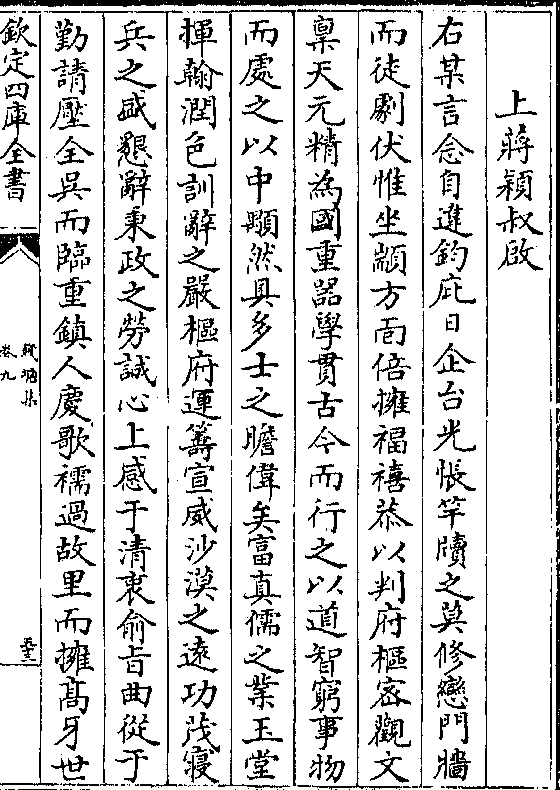 上蔣穎叔啟
右某言念自違鈞庇日企台光悵竿牘之莫修戀門牆
而徒劇伏惟坐顓方面倍擁福禧恭以判府樞宻觀文
稟天元精為國重器學貫古今而行之以道智窮事物
而處之以中顯然具多士之瞻偉矣富真儒之業玉堂
揮翰潤色訓辭之嚴樞府運籌宣威沙漠之遠功茂寢
兵之盛懇辭秉政之勞誠心上感于清衷俞旨曲從于
勤請壓全吳而臨重鎮人慶歌襦過故里而擁髙牙世
欽定四庫全書
錢塘集
卷九